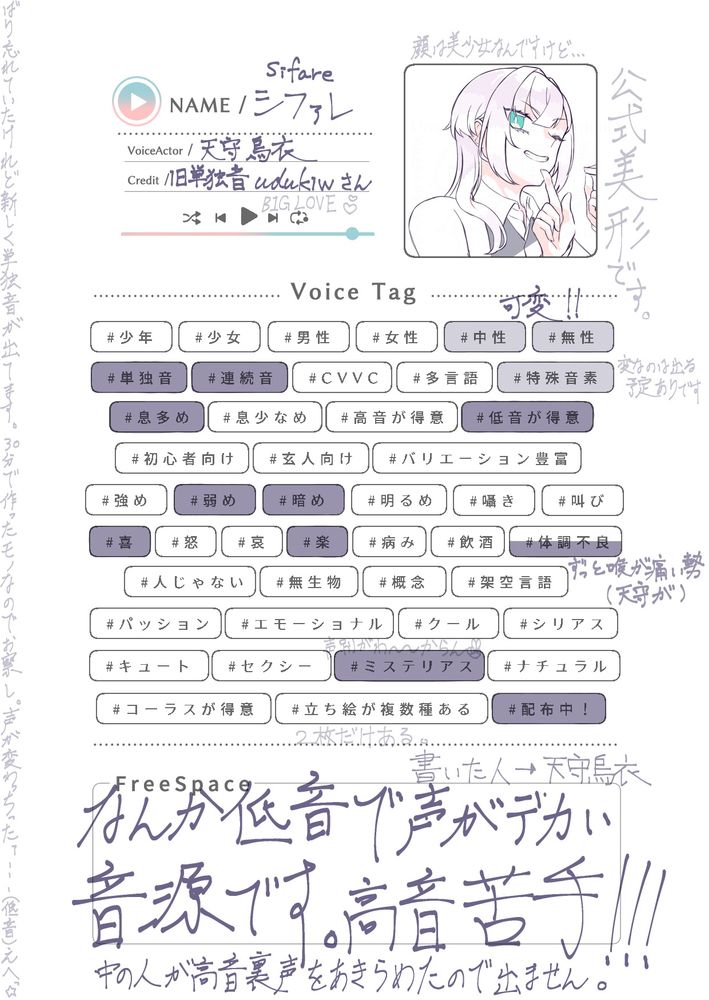 顔は美少女なんですけど...
公式美形です。
Sifare
NAME / シファレ
VoiceActor / 天守烏衣
Credit / 旧単独音 udukiwさん
BIG LOVE♡
Voice Tag
可変!!
#少年 #少女 #男性 #女性 #中性 #無性
#単独音 #連続音 #CVVC #多言語 #特殊音素
変なのは出る
予定ありです
#息多め #息少なめ #高音が得意 #低音が得意
#初心者向け #玄人向け #バリエーション豊富
#強め #弱め #暗め #明るめ #囁き #叫び
#喜 #怒 #哀 #楽 #病み #飲酒 #体調不良
ずっと喉が痛い勢
(天守が)
#人じゃない #無生物 #概念 #架空言語
#パッション #エモーショナル #クール #シリアス
声別がわ〜〜からん
#キュート #セクシー #ミステリアス #ナチュラル
#コーラスが得意 #立ち絵が複数種ある #配布中!
2枚だけある。
書いた人→天守烏衣
FreeSpace
なんか低音で声がデカい
音源です。高音苦手!!!
中の人が高音裏声をあきらめたので出ません。
ばり忘れていたけれど新しく単独音が出てます。30分で作ったモノなのでお察し。声が変わっちった T---(低音)えへ☆